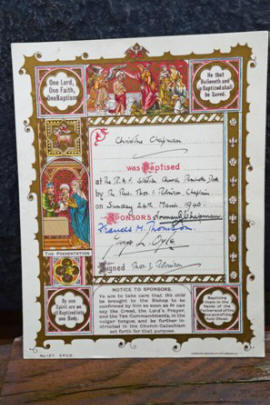 One Lord,
One Faith,
One Baptism
He that
Believeth and
is Baptized shall
be Saved.
Christina Chapman
was Baptised
at The R.A.F. Church
by The Rev. Thos. J. Chaplain
on Sunday 24th March 1940.
Sponsors
Francis M. Thomson
George L. Ogle
Signed Thos. J.
The Presentation
By one
Spirit are we
all Baptized into
one Body.
NOTICE TO SPONSORS.
Ye are to take care that this child
be brought to the Bishop to be
confirmed by him so soon as he can
say the Creed, the Lord's Prayer,
and the Ten Commandments, in the
vulgar tongue, and be further in-
structed in the Church-Catechism
set forth for that purpose
Baptizing
them in the
Name of the
Father and of the
Son and of the
Holy Ghost.